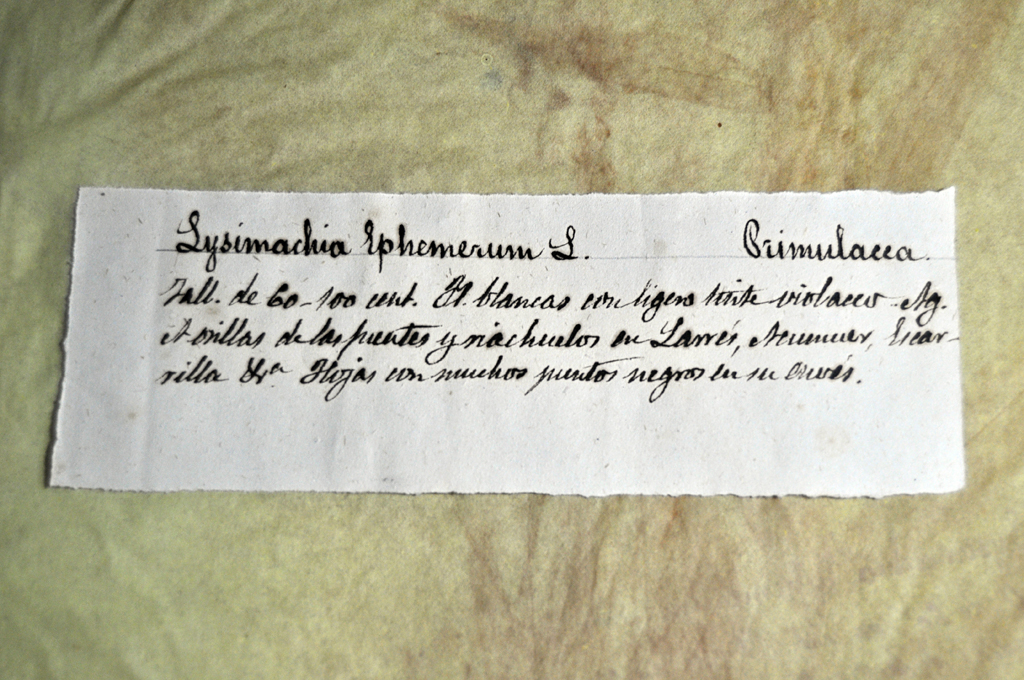 Lysimachia Ephemerum L. Primulacea.
Tall. de 60-100 cent. Fl. blancas con ligero tinte violaceo. Ag.
A orillas de las fuentes y riachuelos en Larrés, Acumuer, Escar-
rilla &ª Hojas con muchos puntos negros en su envés.